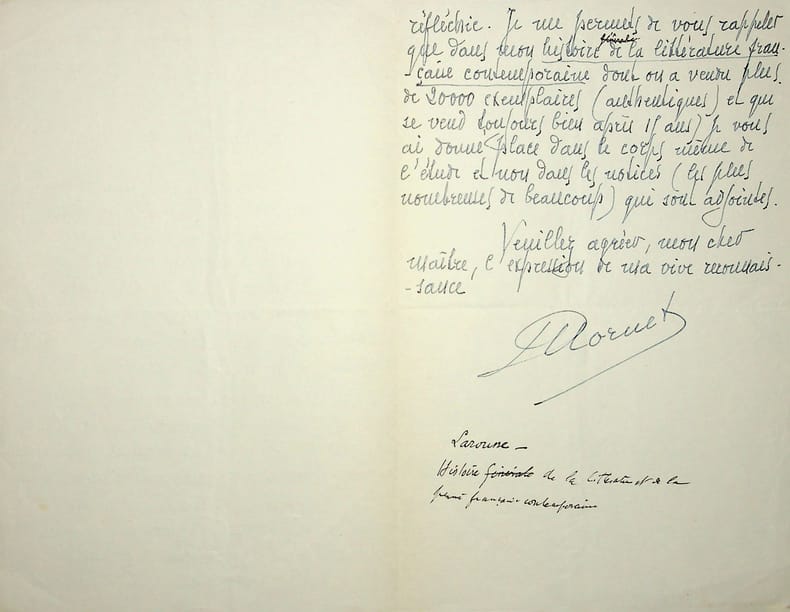 réfléchie. Je me permets de vous rappeler
que dans mon histoire générale de la littérature fran-
-çaise contemporaine dont on a vendu plus
de 20000 exemplaires (authentiques) et qui
se vend toujours bien après 15 ans) je vous
ai donné place dans le corps même de
l'étude et non dans les notices (les plus
nombreuses de beaucoup) qui sont adjointes.
Veuillez agréer, mon cher
maître, l'expression de ma vive reconnais-
-sance
DMornet
Larousse –
Histoire générale de la littérature et de la
pensée française contemporaine